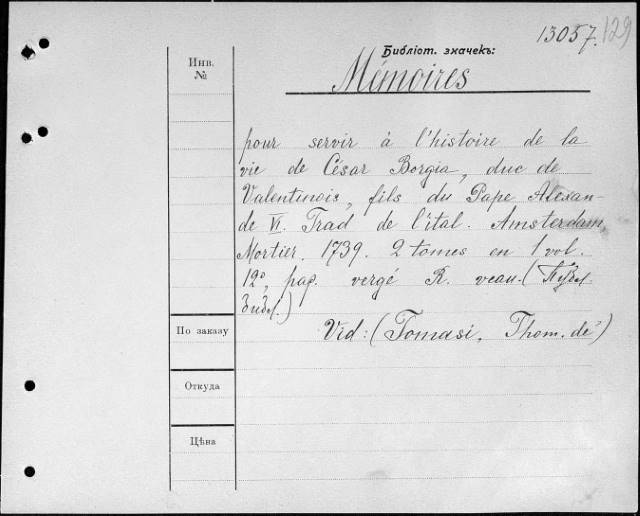 13057. 129
Библіот. значекъ:
Инв.
№
Mémoires
pour servir à l'histoire de la
vie de César Borgia, duc de
Valentinois, fils du Pape Alexan-
de VI. Trad de l'ital. Amsterdam,
Mortier. 1739. 2 tomes en 1 vol.
12º, pap. vergé R. veau. (Публ.
Библ.)
Vid: (Tomasi, Thom. de)
По заказу
Откуда
Цѣна